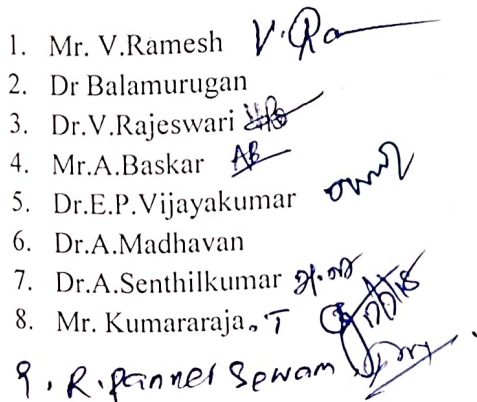 1. Mr. V.Ramesh V.Ra
2. Dr Balamurugan
3. Dr.V.Rajeswari
4. Mr.A.Baskar AB
5. Dr.E.P.Vijayakumar
6. Dr.A.Madhavan
7. Dr.A.Senthilkumar
8. Mr. Kumararaja. T
9. R. Pannel Selvam